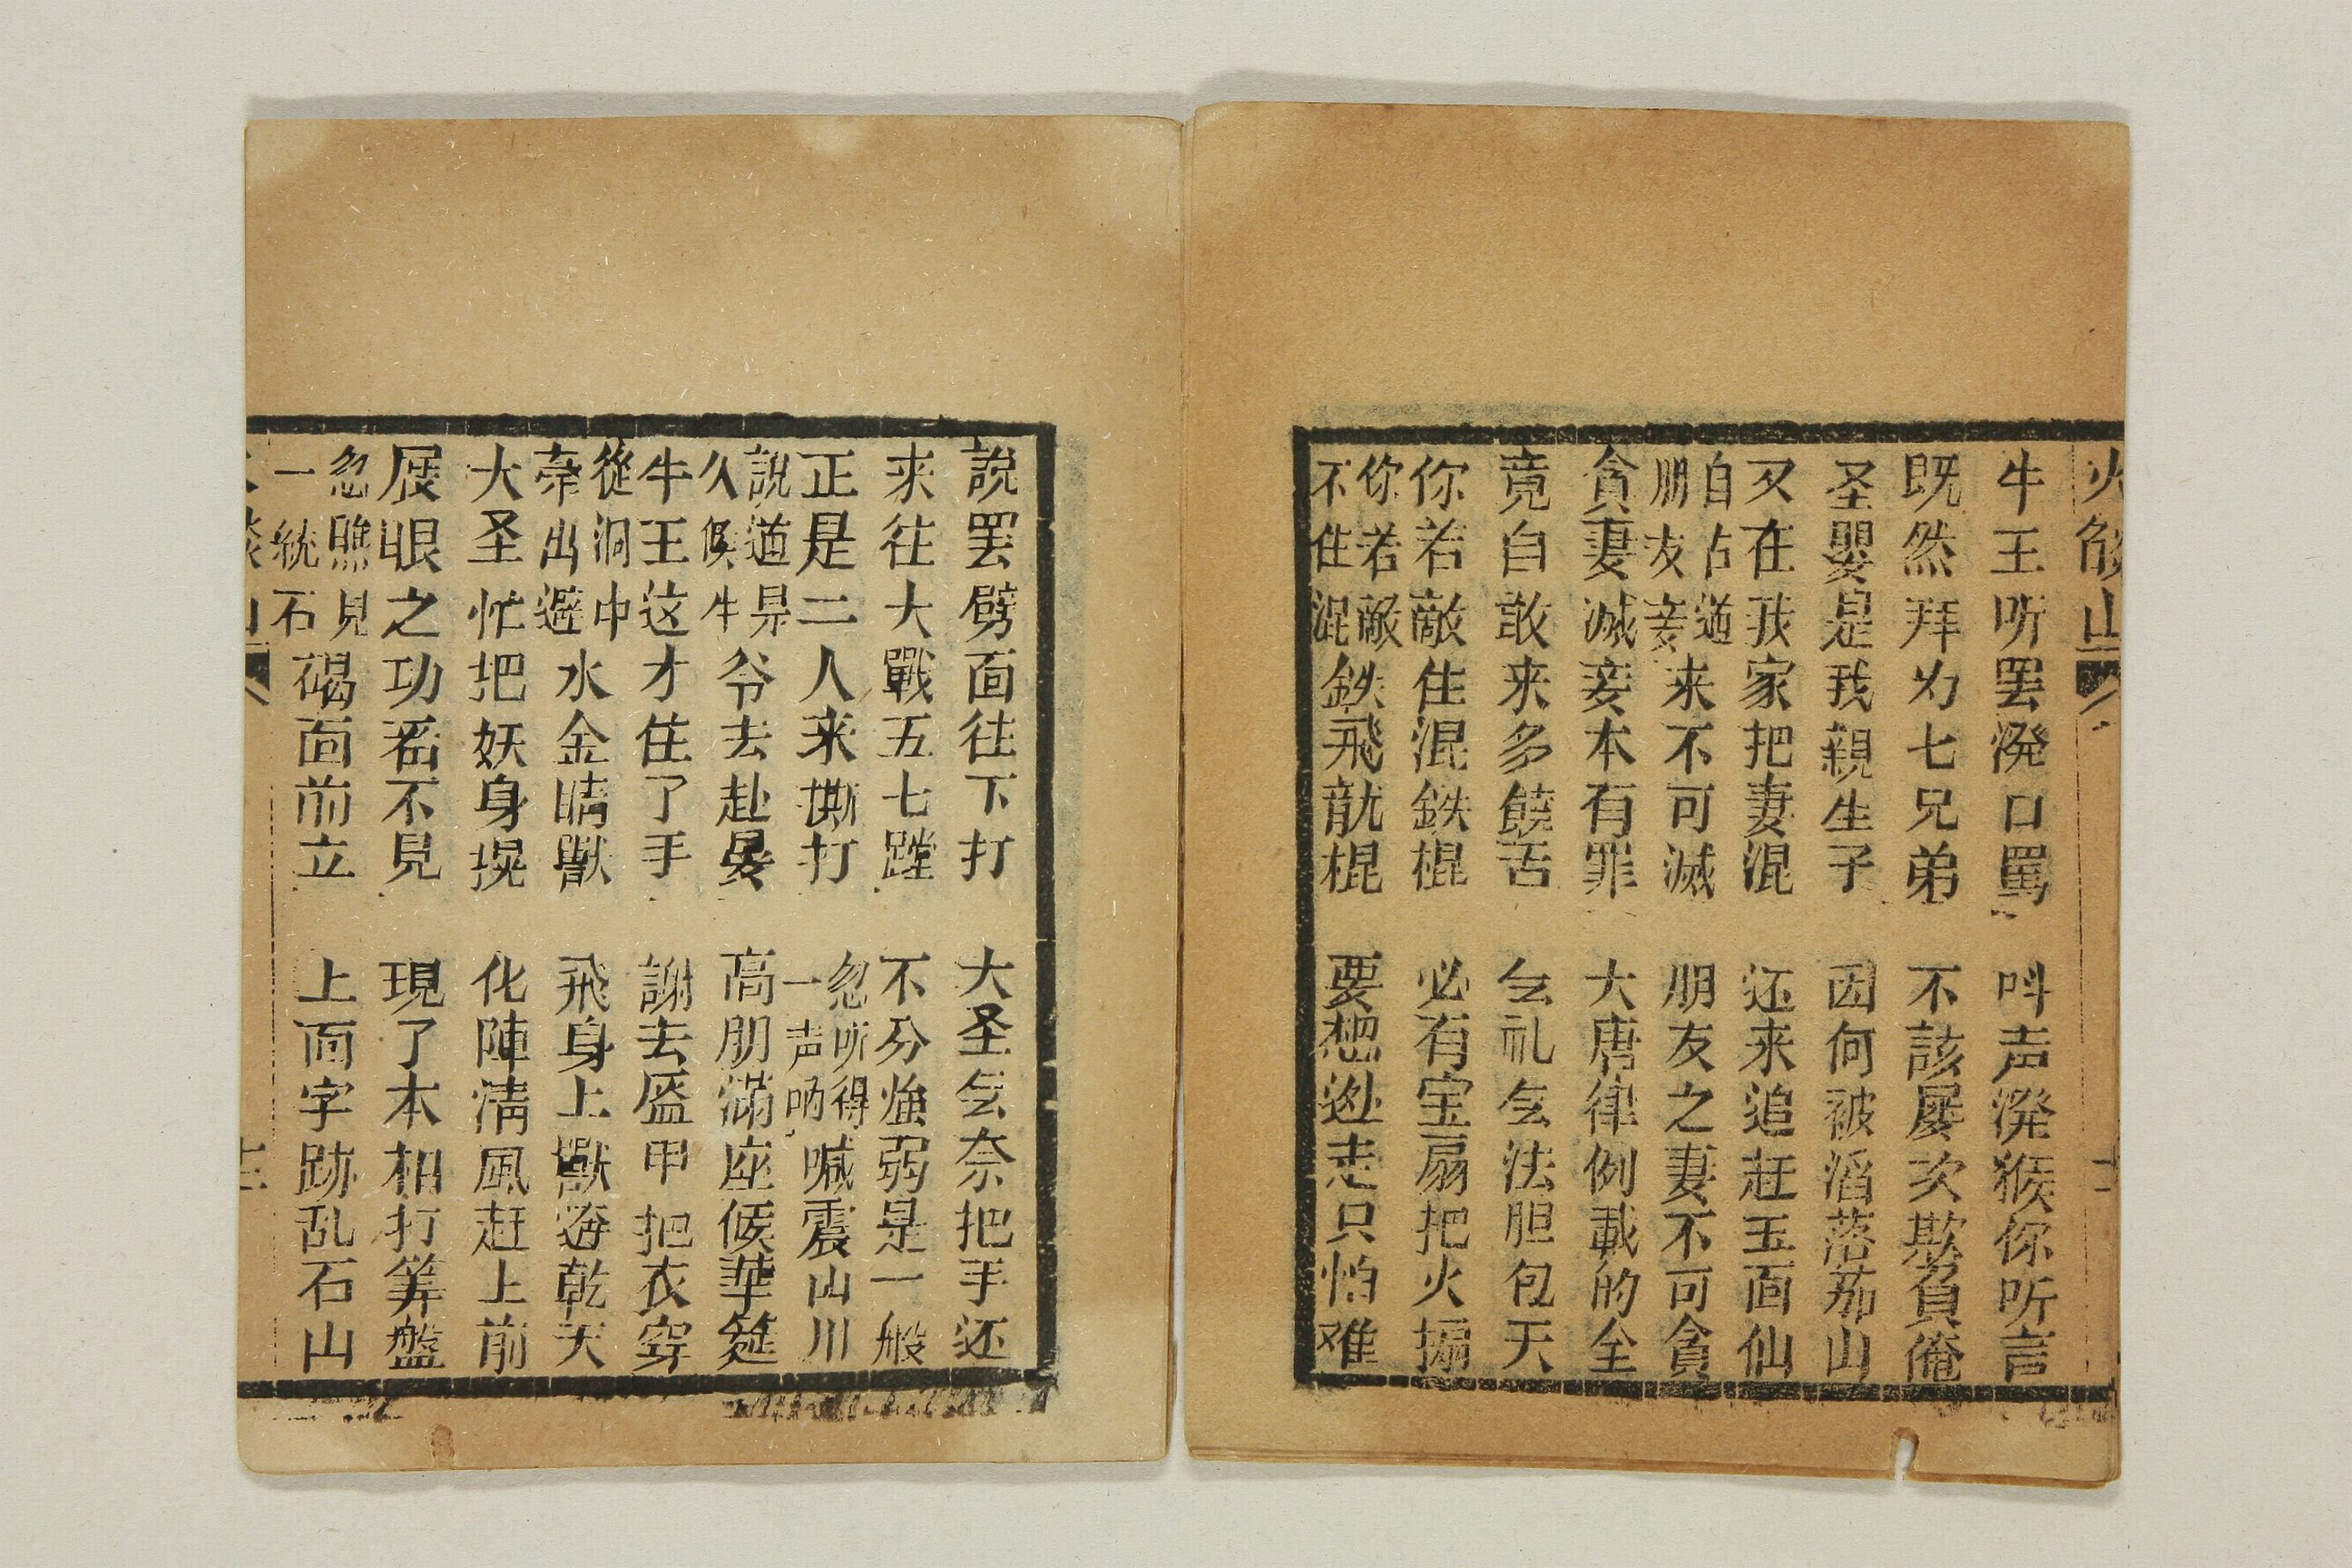 火焰山
牛王听罢潑口罵 叫声潑猴你听言
既然拜为七兄弟 不該屡次欺負俺
圣嬰是我親生子 因何被滔落茄山
又在我家把妻混 还来追赶玉面仙
自古道朋友妾来不可滅 朋友之妻不可貪
貪妻滅妾本有罪 大唐律例載的全
竟自敢来多饒舌 乞礼乞法胆包天
你若敵住混鉄棍 必有宝扇把火搧
你若敵不住混鉄飛龍棍 要想逃走只怕难
說罢劈面往下打 大圣乞奈把手还
来往大戰五七蹚 不分強弱是一般
正是二人来撕打 忽听得一声吶喊震山川
說道是久候牛爷去赴晏 高朋滿座候華筵
牛王这才住了手 謝去盔甲把衣穿
從洞中牽出避水金睛獸 飛身上獸海乾天
大圣忙把妖身揌 化陣清風赶上前
展眼之功看不見 現了本相打筭盤
忽瞧見一統石碣面前立 上面字跡乱石山